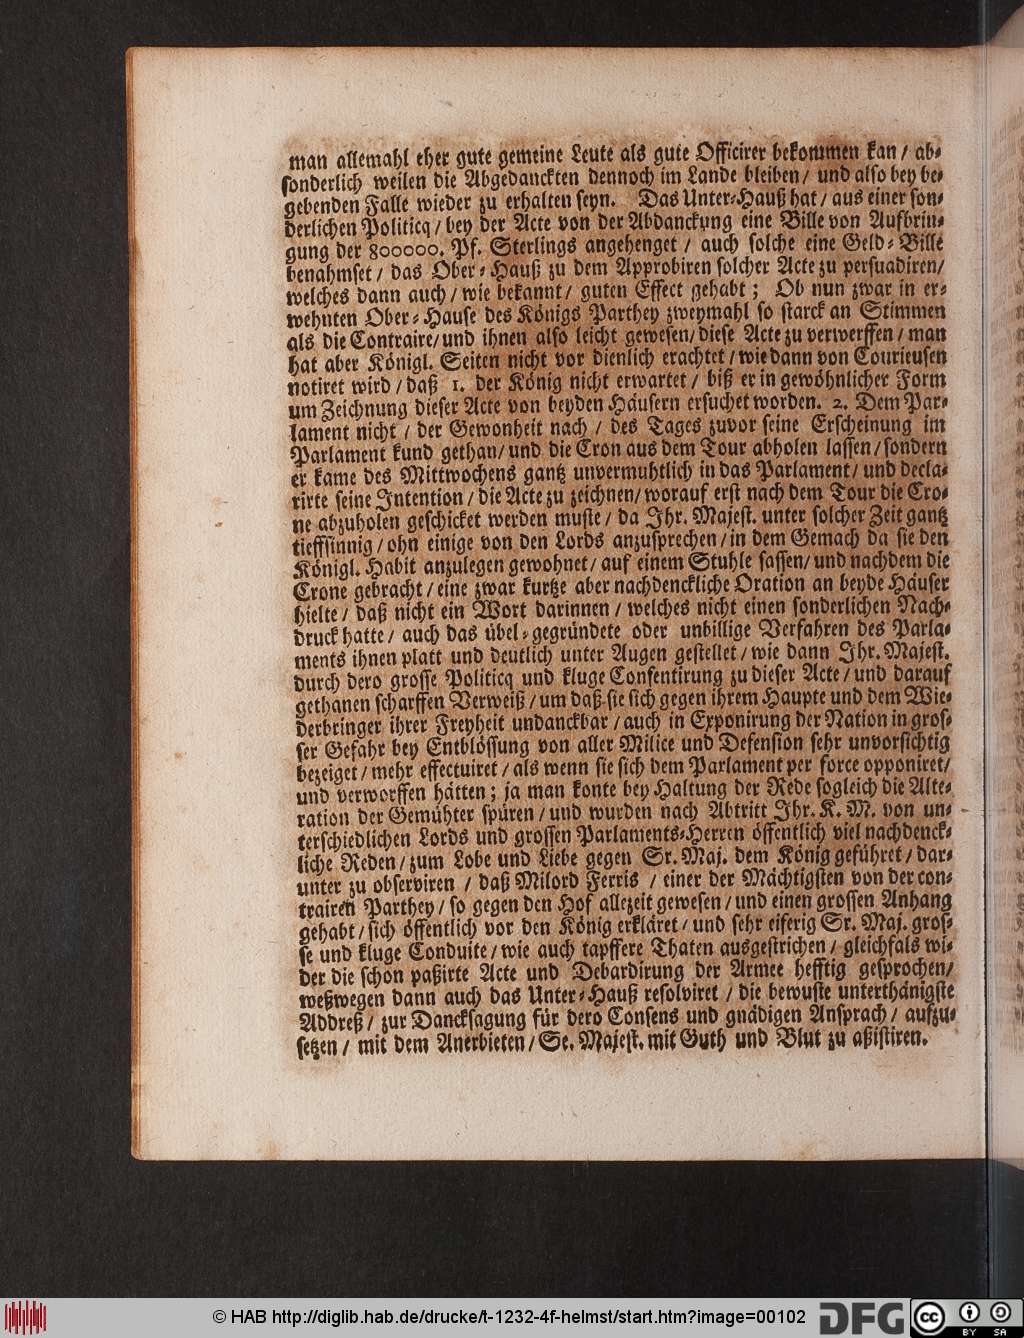 man allemahl eher gute gemeine Leute als gute Officirer bekommen kan / ab-
sonderlich weilen die Abgedanckten dennoch im Lande bleiben / und also bey be-
gebenden Falle wieder zu erhalten seyn. Das Unter-Hauß hat / aus einer son-
derlichen Politicq / bey der Acte von der Abdanckung eine Bille von Aufbrin-
gung der 800000. Pf. Sterlings angehenget / auch solche eine Geld-Bille
benahmset / das Ober-Hauß zu dem Approbiren solcher Acte zu persuadiren /
welches dann auch / wie bekannt / guten Effect gehabt ; Ob nun zwar in er-
wehnten Ober-Hause des Königs Parthey zweymahl so starck an Stimmen
als die Contraire / und ihnen also leicht gewesen / diese Acte zu verwerffen / man
hat aber Königl. Seiten nicht vor dienlich erachtet / wie dann von Courieusen
notiret wird / daß 1. der König nicht erwartet / biß er in gewöhnlicher Form
um Zeichnung dieser Acte von beyden Häusern ersuchet worden. 2. Dem Par-
lament nicht / der Gewonheit nach / des Tages zuvor seine Erscheinung im
Parlament kund gethan / und die Cron aus dem Tour abholen lassen / sondern
er kame des Mittwochens gantz unvermuhtlich in das Parlament / und decla-
rirte seine Intention / die Acte zu zeichnen / worauf erst nach dem Tour die Cro-
ne abzuholen geschicket werden muste / da Ihr. Majest. unter solcher Zeit gantz
tieffsinnig / ohn einige von den Lords anzusprechen / in dem Gemach da sie den
Königl. Habit anzulegen gewohnet / auf einem Stuhle sassen / und nachdem die
Crone gebracht / eine zwar kurtze aber nachdenckliche Oration an beyde Häuser
hielte / daß nicht ein Wort darinnen / welches nicht einen sonderlichen Nach-
druck hatte / auch das übel-gegründete oder unbillige Verfahren des Parla-
ments ihnen platt und deutlich unter Augen gestellet / wie dann Ihr. Majest.
durch dero grosse Politicq und kluge Consentirung zu dieser Acte / und darauf
gethanen scharffen Verweiß / um daß sie sich gegen ihrem Haupte und dem Wie-
derbringer ihrer Freyheit undanckbar / auch in Exponirung der Nation in gros-
ser Gefahr bey Entblössung von aller Milice und Defension sehr unvorsichtig
bezeiget / mehr effectuiret / als wenn sie sich dem Parlament per force opponiret /
und verworffen hätten ; ja man konte bey Haltung der Rede sogleich die Alte-
ration der Gemühter spüren / und wurden nach Abtritt Ihr. K. M. von un-
terschiedlichen Lords und grossen Parlaments-Herren öffentlich viel nachdenck-
liche Reden / zum Lobe und Liebe gegen Sr. Maj. dem König geführet / dar-
unter zu observiren / daß Milord Ferris / einer der Mächtigsten von der con-
trairen Parthey / so gegen den Hof allezeit gewesen / und einen grossen Anhang
gehabt / sich öffentlich vor den König erkläret / und sehr eiferig Sr. Maj. gros-
se und kluge Conduite / wie auch tapffere Thaten ausgestrichen / gleichfals wi-
der die schon paßirte Acte und Debardirung der Armee hefftig gesprochen /
weßwegen dann auch das Unter-Hauß resolviret / die bewuste unterthänigste
Addreß / zur Dancksagung für dero Consens und gnädigen Ansprach / aufzu-
setzen / mit dem Anerbieten / Se. Majest. mit Guth und Blut zu aßistiren.
© HAB http://diglib.hab.de/drucke/t-1232-4f-helmst/start.htm?image=00102
DFG
cc BY SA